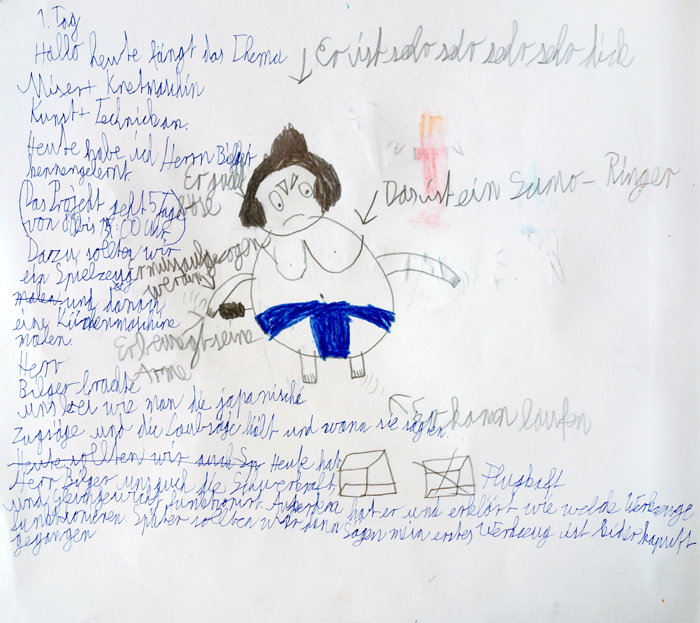 1. Tag
Hallo heute fängt das Thema
Mixer + Knetmaschin
Kunst + Technick an.
Heute habe ich Herrn Bilger
kennengelernt
(Das Projekt geht 5 Tage
von bis 15:00 Uhr)
Dazu sollten wir
ein Spielzeug
malen und danach
eine Küchenmaschine
malen.
Herr
Bilger brachte
uns bei wie man die japanische
Zugsäge und die Laubsäge hält und wann sie sägten.
Heute sollten wir auch Heute hat
Herr Bilger uns auch die Schwerkraft
und Gleichgewicht funktionirt. Auserdem hat er und erklärt wie welche Werkzeuge
funktionieren Später sollten wir dann Sägen mein erstes Werkzeug ist leider kaputt
gegangen
Er ist sehr sehr sehr sehr dick
Das ist ein Sumo-Ringer
Er
muss aufgezogen
werden
Er bewegt seine
Arme
Er kann laufen
Flugkraft